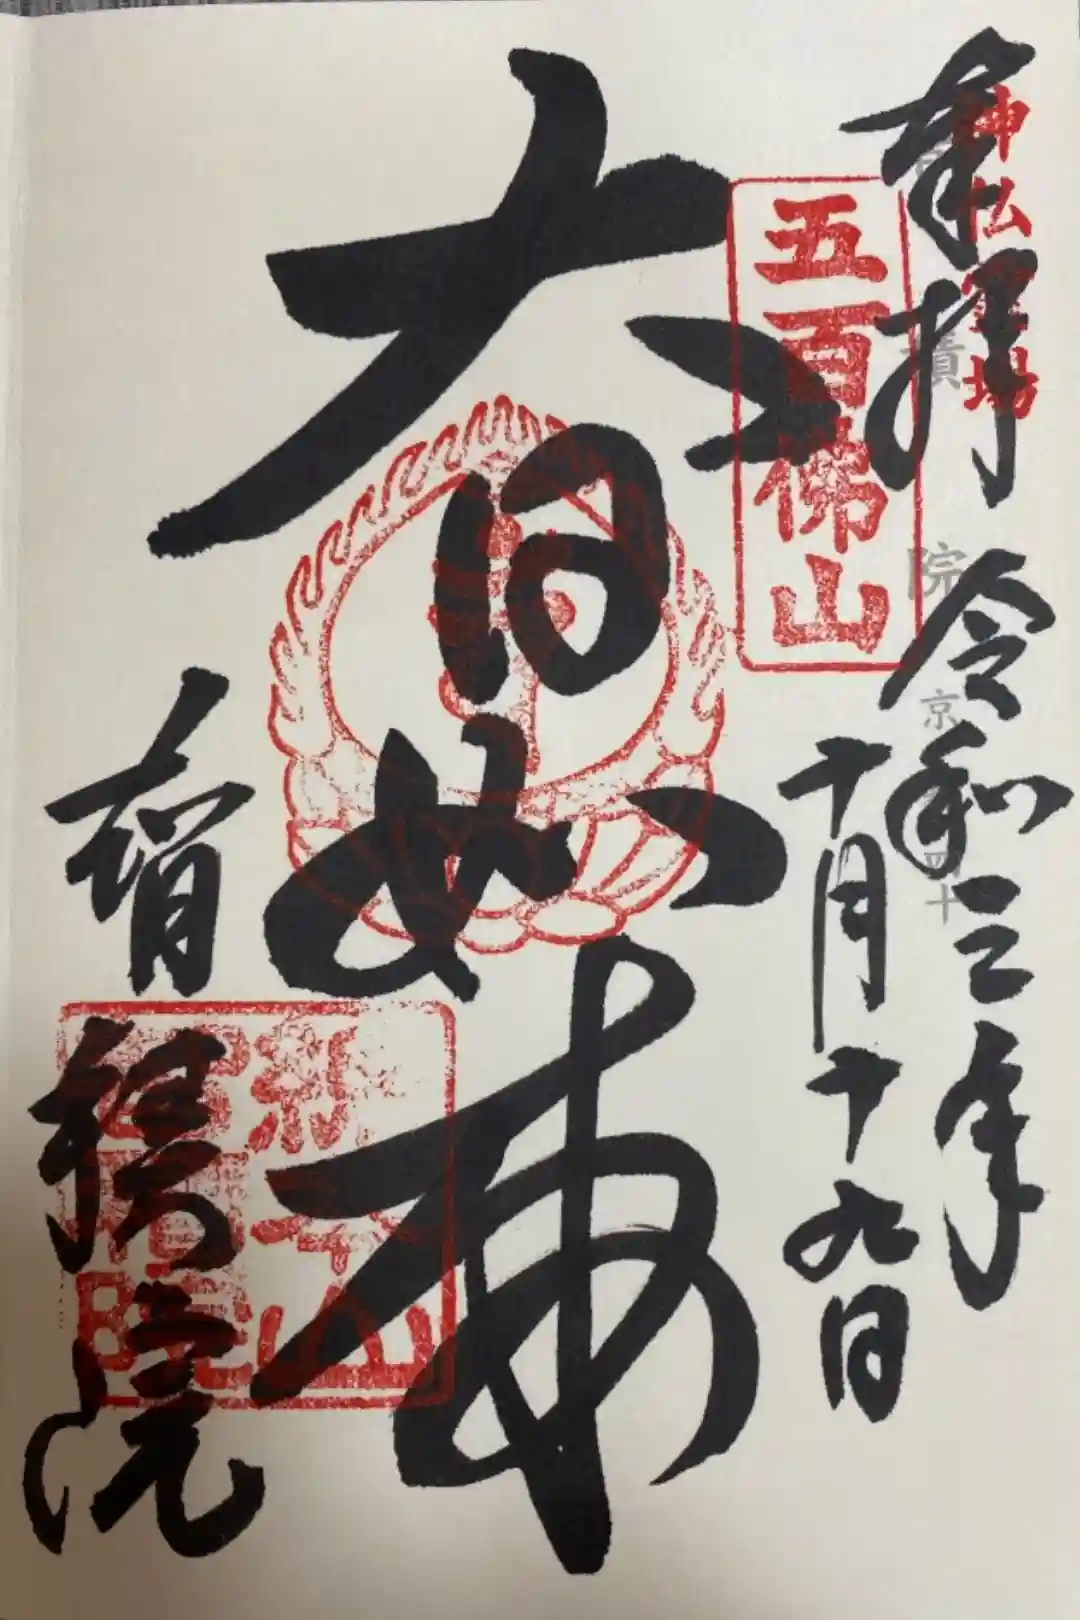 奉拝
神仏霊場
令和三年
十月十九日
積院
京
四十
五百佛山
大日如来
総本山
智積院
智積院